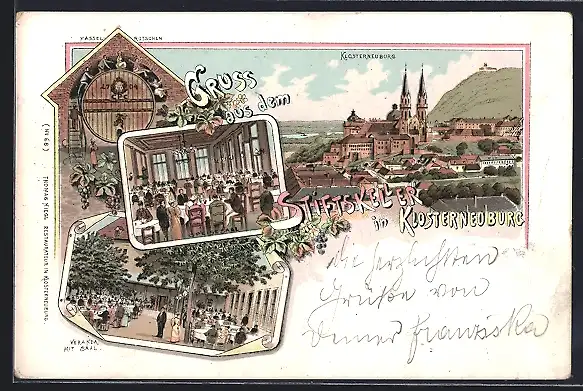 FASSEL RUTSCHEN
KLOSTERNEUBURG
GRUSS
aus dem
STIFTSKELLER
in KLOSTERNEUBURG
(No 68) THOMAS RESTAURATEUR IN KLOSTERNEUBURG
VERANDA
MIT SAAL.
die herzlichsten
Grüße von
Deiner Franziska